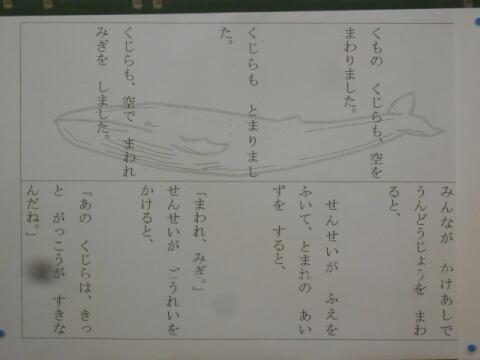 くもの　くじらも、空を
まわりました。
くじらも　とまりまし
た。
くじらも、空で　まわれ
みぎを　しました。
みんなが　かけあしで
うんどうじょうを　まわ
ると、
せんせいが　ふえを
ふいて、とまれの　あい
ずを　すると、
「まわれ、みぎ。」
せんせいが　ごうれいを
かけると、
「あの　くじらは、きっ
と　がっこうが　すきな
んだね。」